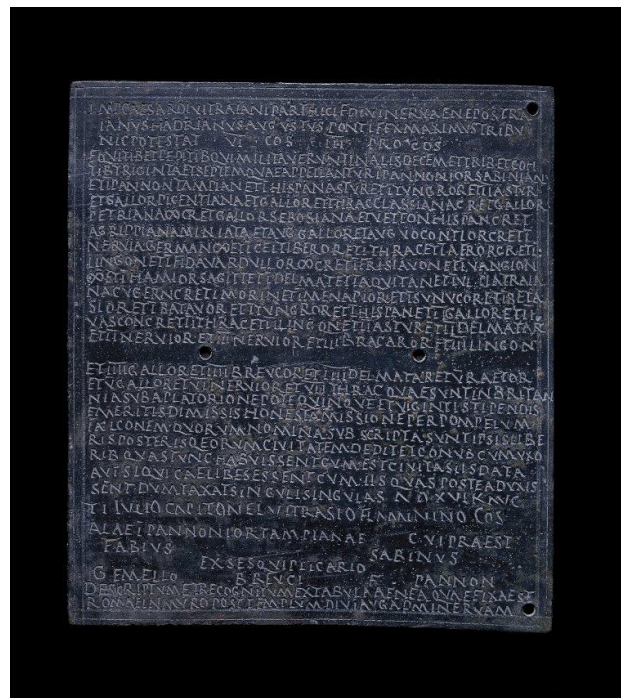 IMP CAESAR DIVI TRAIANI PARTHICI F DIVI NERVAE NEPOS TRA
IANVS HADRIANVS AVGVSTVS PONTIFEX MAXIMVS TRIBV
NIC POTESTAT VI COS III PROCOS
EQVITIB ET PEDITIB QVI MILITAVERVNT IN ALIS DECEM ET TRIB ET COH
TIB TRIGINTA ET SEPTEM QVAE APPELLANTVR I PANNONIOR SABINIAN
ET I PANNON TAMPIAN ET I HISPAN ASTVR ET I TVNGROR ET II ASTVR
ET GALLOR PICENTIANA ET GALLOR ET THRAC CLASSIANA C R ET GALLOR
PETRIANA ∞ C R ET GALLOR SEBOSIANA ET VETTON HISPAN C R ET
AGRIPPIANA MINIATA ET AVG GALLOR ET AVG VOCONTIOR C R ET I
NERVIA GERMAN ∞ ET I CELTIBEROR ET I THRAC ET I AFROR C R ET I
LINGON ET I FID VARDVLLOR ∞ C R ET I FRISIAVON ET I VANGION
∞ ET I HAMIOR SAGITT ET I DELMAT ET I AQVITAN ET I VLPIA TRAIA
NA CVGERN C R ET I MORIN ET I MENAPIOR ET I SVNVCOR ET I BETA
SIOR ET I BATAVOR ET I TVNGROR ET I HISPAN ET II GALLOR ET II
VASCON C R ET II THRAC ET II LINGON ET II ASTVR ET II DELMATAR
ET II NERVIOR ET III NERVIOR ET III BRACAROR ET IIII LINGON
ET IIII GALLOR ET IIII BREVCOR ET IIII DELMATAR ET V RAETOR
ET V GALLOR ET VI NERVIOR ET VII THRAC QVAE SVNT IN BRITAN
NIA SVB A PLATORIO NEPOTE QVINQVE ET VIGINTI STIPENDIS
EMERITIS DIMISSIS HONESTA MISSIONE PER POMPEIVM
FALCONEM QVORVM NOMINA SVBSCRIPTA SVNT IPSIS LIBE
RIS POSTERISQ EORVM CIVITATEM DEDIT ET CONVB CVM VXO
RIBVS QVAS TVNC HABVISSENT CVM EST CIVITAS IIS DATA
AVT SIQVI CAELIBES ESSENT CVM IIS QVAS POSTEA DVXIS
SENT DVMTAXAT SINGVLI SINGVLAS A D XVI K AVG
TI IVLIO CAPITONE L VITRASIO FLAMININO COS
ALAE I PANNONIOR TAMPIANAE CVI PRAEST
FABIVS SABINVS
EX SESQVIPLICARIO
GEMELLO BREVCI F PANNON
DESCRIPTVM ET RECOGNITVM EX TABVLA AENEA QVAE FIXA EST
ROMAE IN MVRO POST TEMPLVM DIVI AVG AD MINERVAM